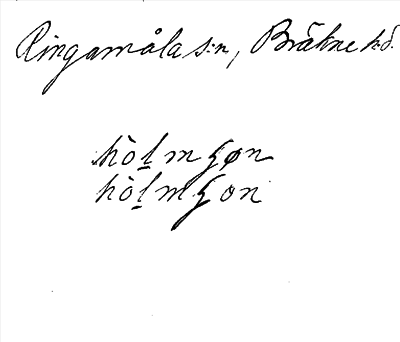 Ringamåla s:n, Bräkne hd.
hòl̲mʒøn
hòl̲mʒon